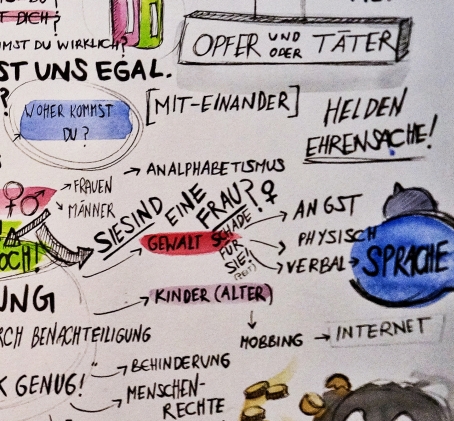 T DICH?
MMST DU WIRKLICH?
ST UNS EGAL.
?
OPFER UND ODER TÄTER
WOHER KOMMST
DU?
[MIT-EINANDER]
HELDEN
EHRENSACHE!
→ ANALPHABETISMUS
→ FRAUEN
→ MÄNNER
SIE SIND EINE FRAU? ♀
OCH!
GEWALT
SCHADE
FÜR
SIE!
→ ANGST
→ PHYSISCH
→ VERBAL →
SPRACHE
UNG
→ KINDER (ALTER)
RCH BENACHTEILIGUNG
MOBBING → INTERNET
→ BEHINDERUNG
K GENUG!
→ MENSCHEN-
RECHTE